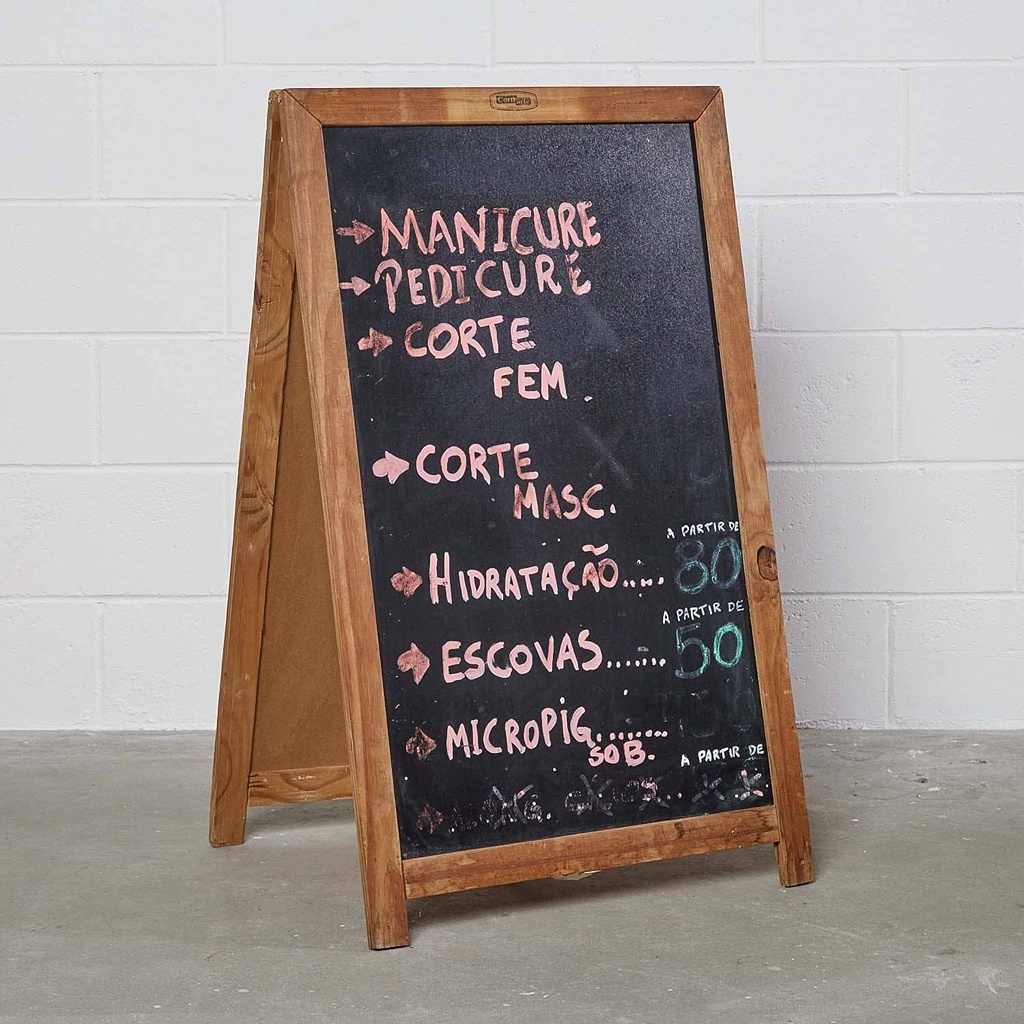 → MANICURE
→ PEDICURE
→ CORTE
FEM.
→ CORTE
MASC.
A PARTIR DE
→ HIDRATAÇÃO.... 80
A PARTIR DE
→ ESCOVAS....... 50
→ MICROPIG........
SOB.
A PARTIR DE